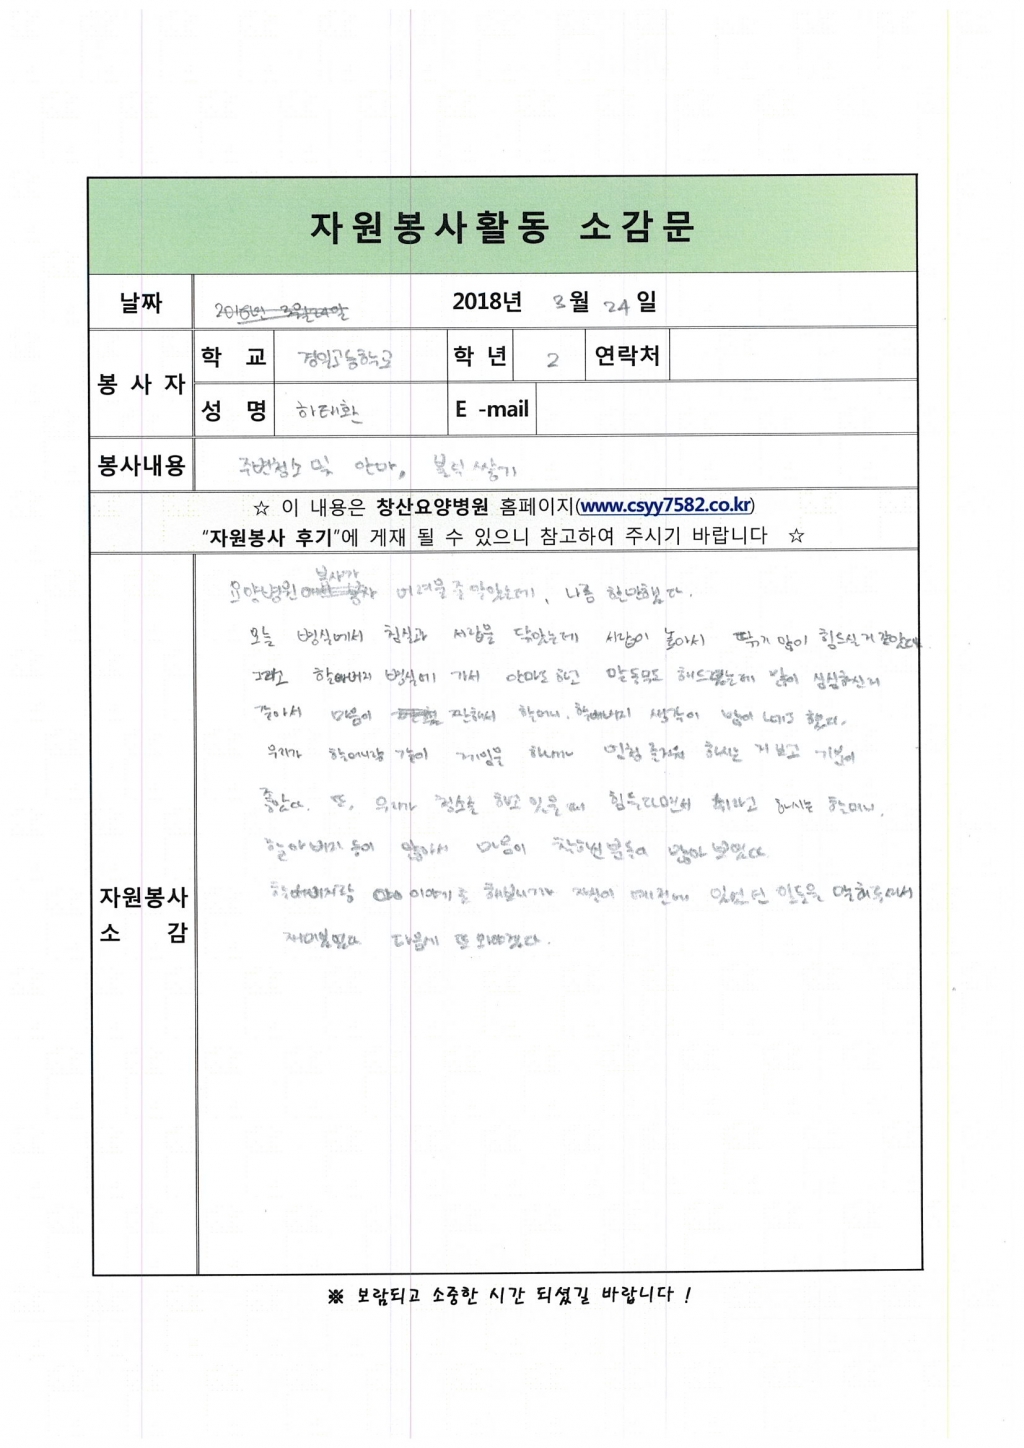 자원봉사활동 소감문
날짜 2018년 3월 24일
봉사자 학교 경일고등학교 학년 2 연락처
성명 하태환 E -mail
봉사내용 주변청소 및 안마, 블럭 쌓기
☆ 이 내용은 창산요양병원 홈페이지(www.csyy7582.co.kr)
"자원봉사 후기"에 게재 될 수 있으니 참고하여 주시기 바랍니다 ☆
자원봉사 소감
요양병원 봉사가 어려울줄 알았는데, 나름 할만했다.
오늘 병실에서 침실과 서랍을 닦았는데 서랍이 높아서 닦기 많이 힘드실거 같았다.
그리고 할아버지 병실에 가서 안마도 하고 말동무도 해드렸는데 많이 심심하신거
같아서 마음이 짠해서 할머니, 할아버지 생각이 많이 나기도 했다.
우리가 할머니랑 같이 게임을 하니까 엄청 즐거워 하시는 거 보고 기분이
좋았다. 또, 우리가 청소를 하고 있을때 힘들다면서 쉬라고 하시는 할머니,
할아버지 분이 많아서 마음이 착하신 분들이 많아 보였다.
할아버지랑 이야기를 해보니까 자신이 예전에 있었던 일들을 말해주셔서
재미있었다 다음에 또 와야겠다.
※ 보람되고 소중한 시간 되셨길 바랍니다 !